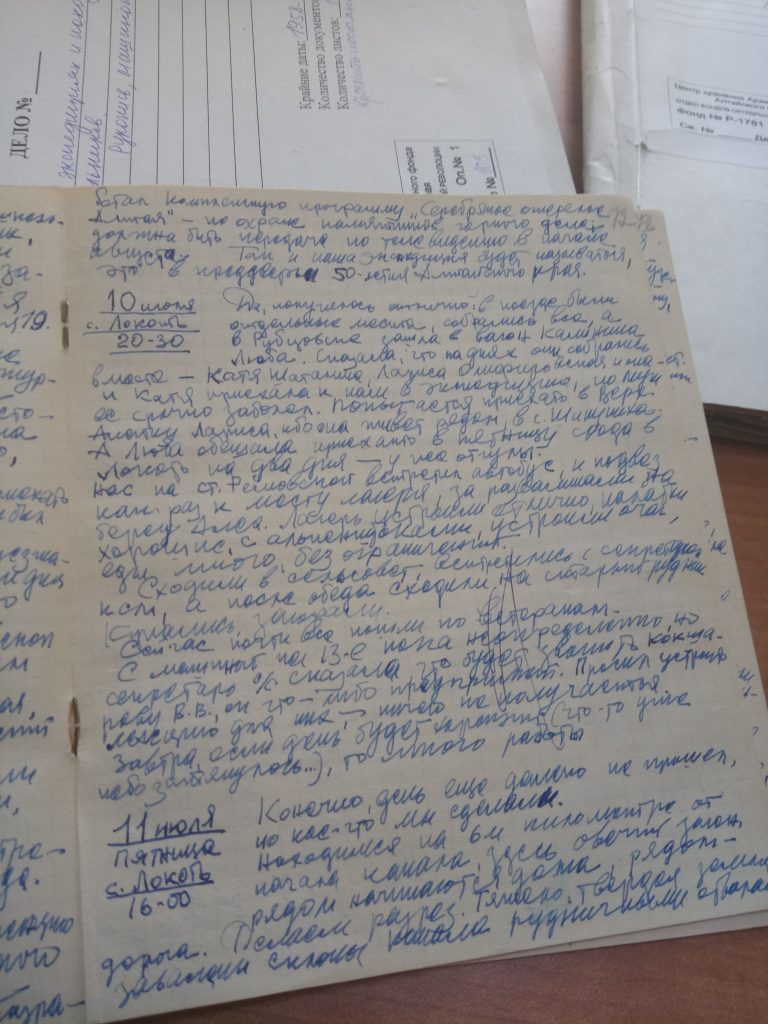 ДЕЛО №
экспедициях и
Рукопись, машиноп
Крайние даты: 1958-
Количество документов
Количество листов:
ного фонда
ная
й революции
Оп.№ 1
№ 185
Центр хранения Архи
Алтайского
отдел фондов октябрьс
Фонд № Р-1751
Св. № Де
ботал комплексную программу "Серебряное ожерелье
Алтая" – по охране памятников горного дела
должна быть передача по телевидению в начале
августа. Так и наша экспедиция будет называться,
это в преддверии 50-летия Алтайского края.
10 июля
с. Локоть
20-30
Да, получилось отлично: в поезде были
отдельные места, собрались все, а
в Рубцовске зашла в вагон Калинина
Люба. Сказала, что на днях они собрались
вместе – Катя Шатанина, Лариса
и Катя приехала к нам в экспедицию, но
ее срочно заболел. Попытается приехать в Верх-
Алейку Лариса, ибо она живет рядом, в с.
А Люба обещала приехать в пятницу сюда в
Локоть на два дня – у нее отгулы.
Нас на ст. встретил автобус, и подвез
как раз к месту лагеря, за развалинами на
берегу Алея. Лагерь устроили отлично, палатки
хорошие, с устроили очаг,
еды много, без ограничений.
Сходили в сельсовет, встретились с секретарем
а после обеда сходили на старый рудник
Купались, загорали.
Сейчас почти все пошли по ветеранам.
С машиной на 13-е пока неопределенно, но
секретарь с/с сказала что будет звонить Кокша-
рову В.В., он что-либо предпримет. Просил устроить
лекцию для них – ничего не получается
Завтра, если день будет хороший (что-то уже
небо затянулось...), то много работы
11 июля
пятница
с. Локоть
16-00
Конечно, день еще далеко не прошел,
но кое-что мы сделали.
Находимся на 6м километре от
начала канала, здесь овечий загон,
рядом начинаются дома, рядом –
дорога. Делаем разрез. Тяжело, твердая земля
завалены склоны канала рудничными отвалами